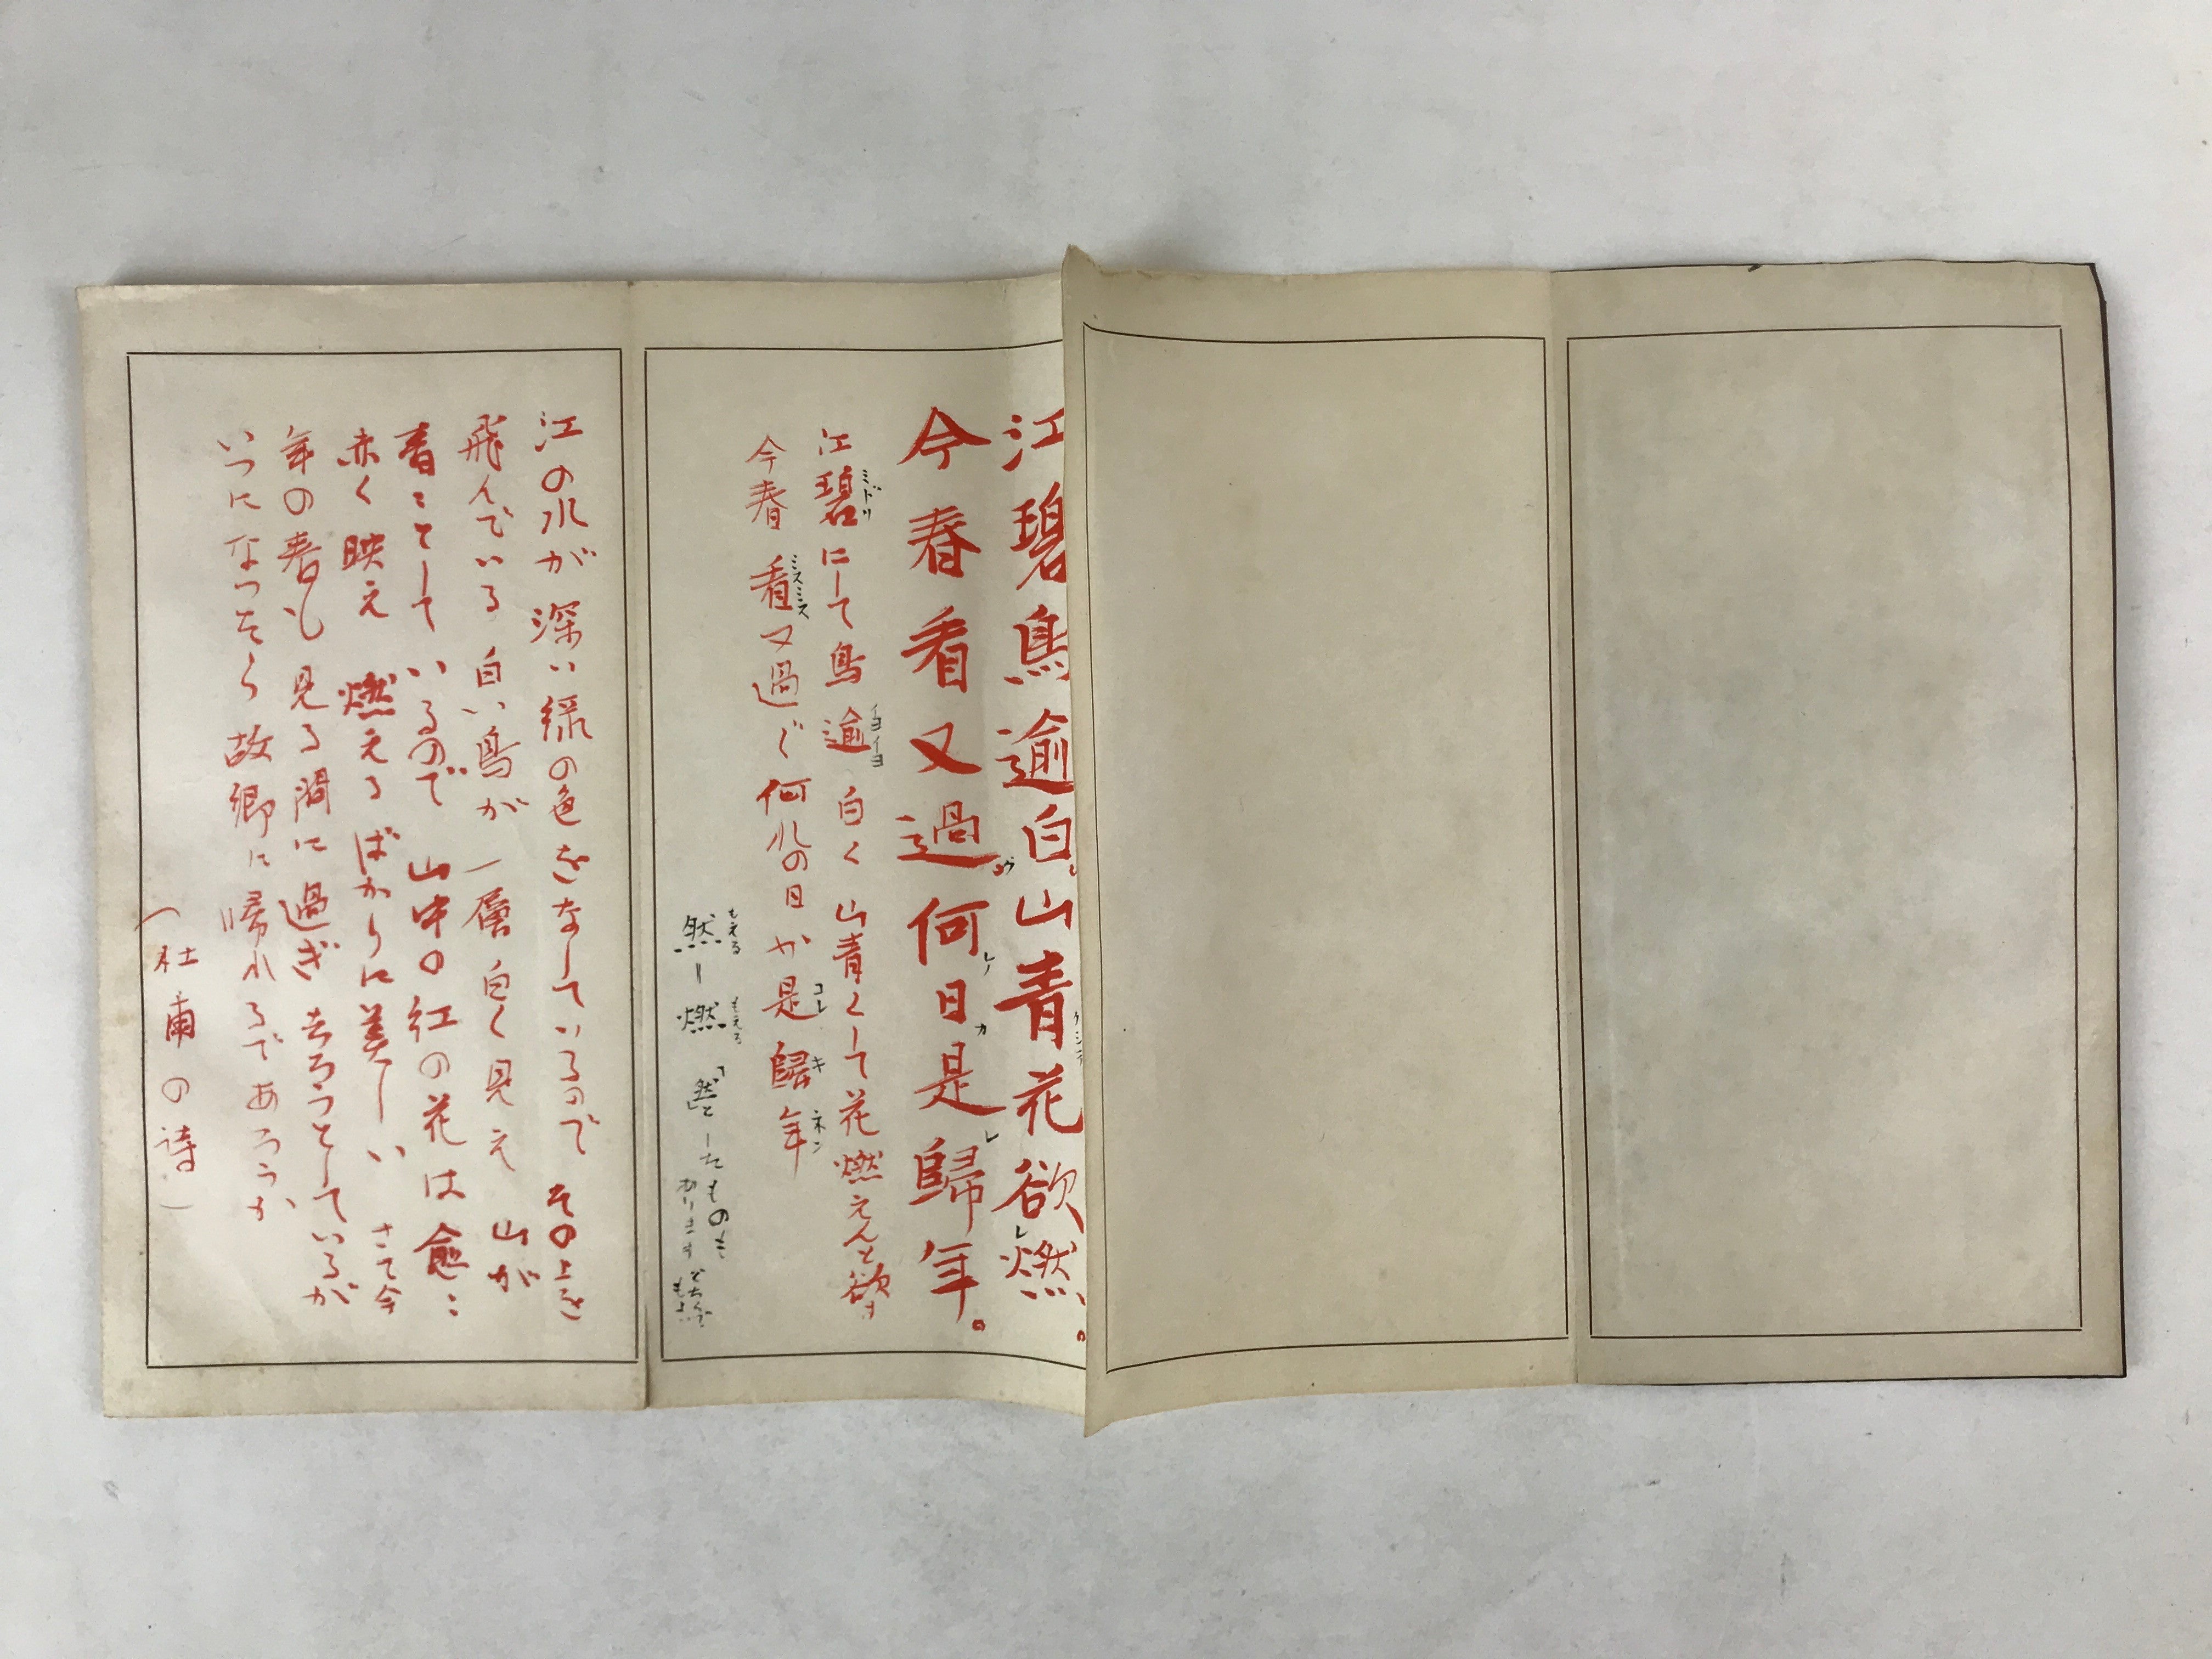 江碧鳥逾白。山青花欲燃。
今春看又過何日是歸年。
江碧にして鳥逾白く山青くして花燃えんと欲す
今春看又過ぐ何れの日か是歸年
然＝燃「然」としたものも
ありますどちらでもよい
江の水が深い緑の色をなしているのでその上を
飛んでいる白い鳥が一層白く見え山が
青々としているので山中の紅の花は愈々
赤く映え燃えるばかりに美しいさて今
年の春も見る間に過ぎ去ろうとしているが
いつになったら故郷に帰れるであろうか
（杜甫の詩）